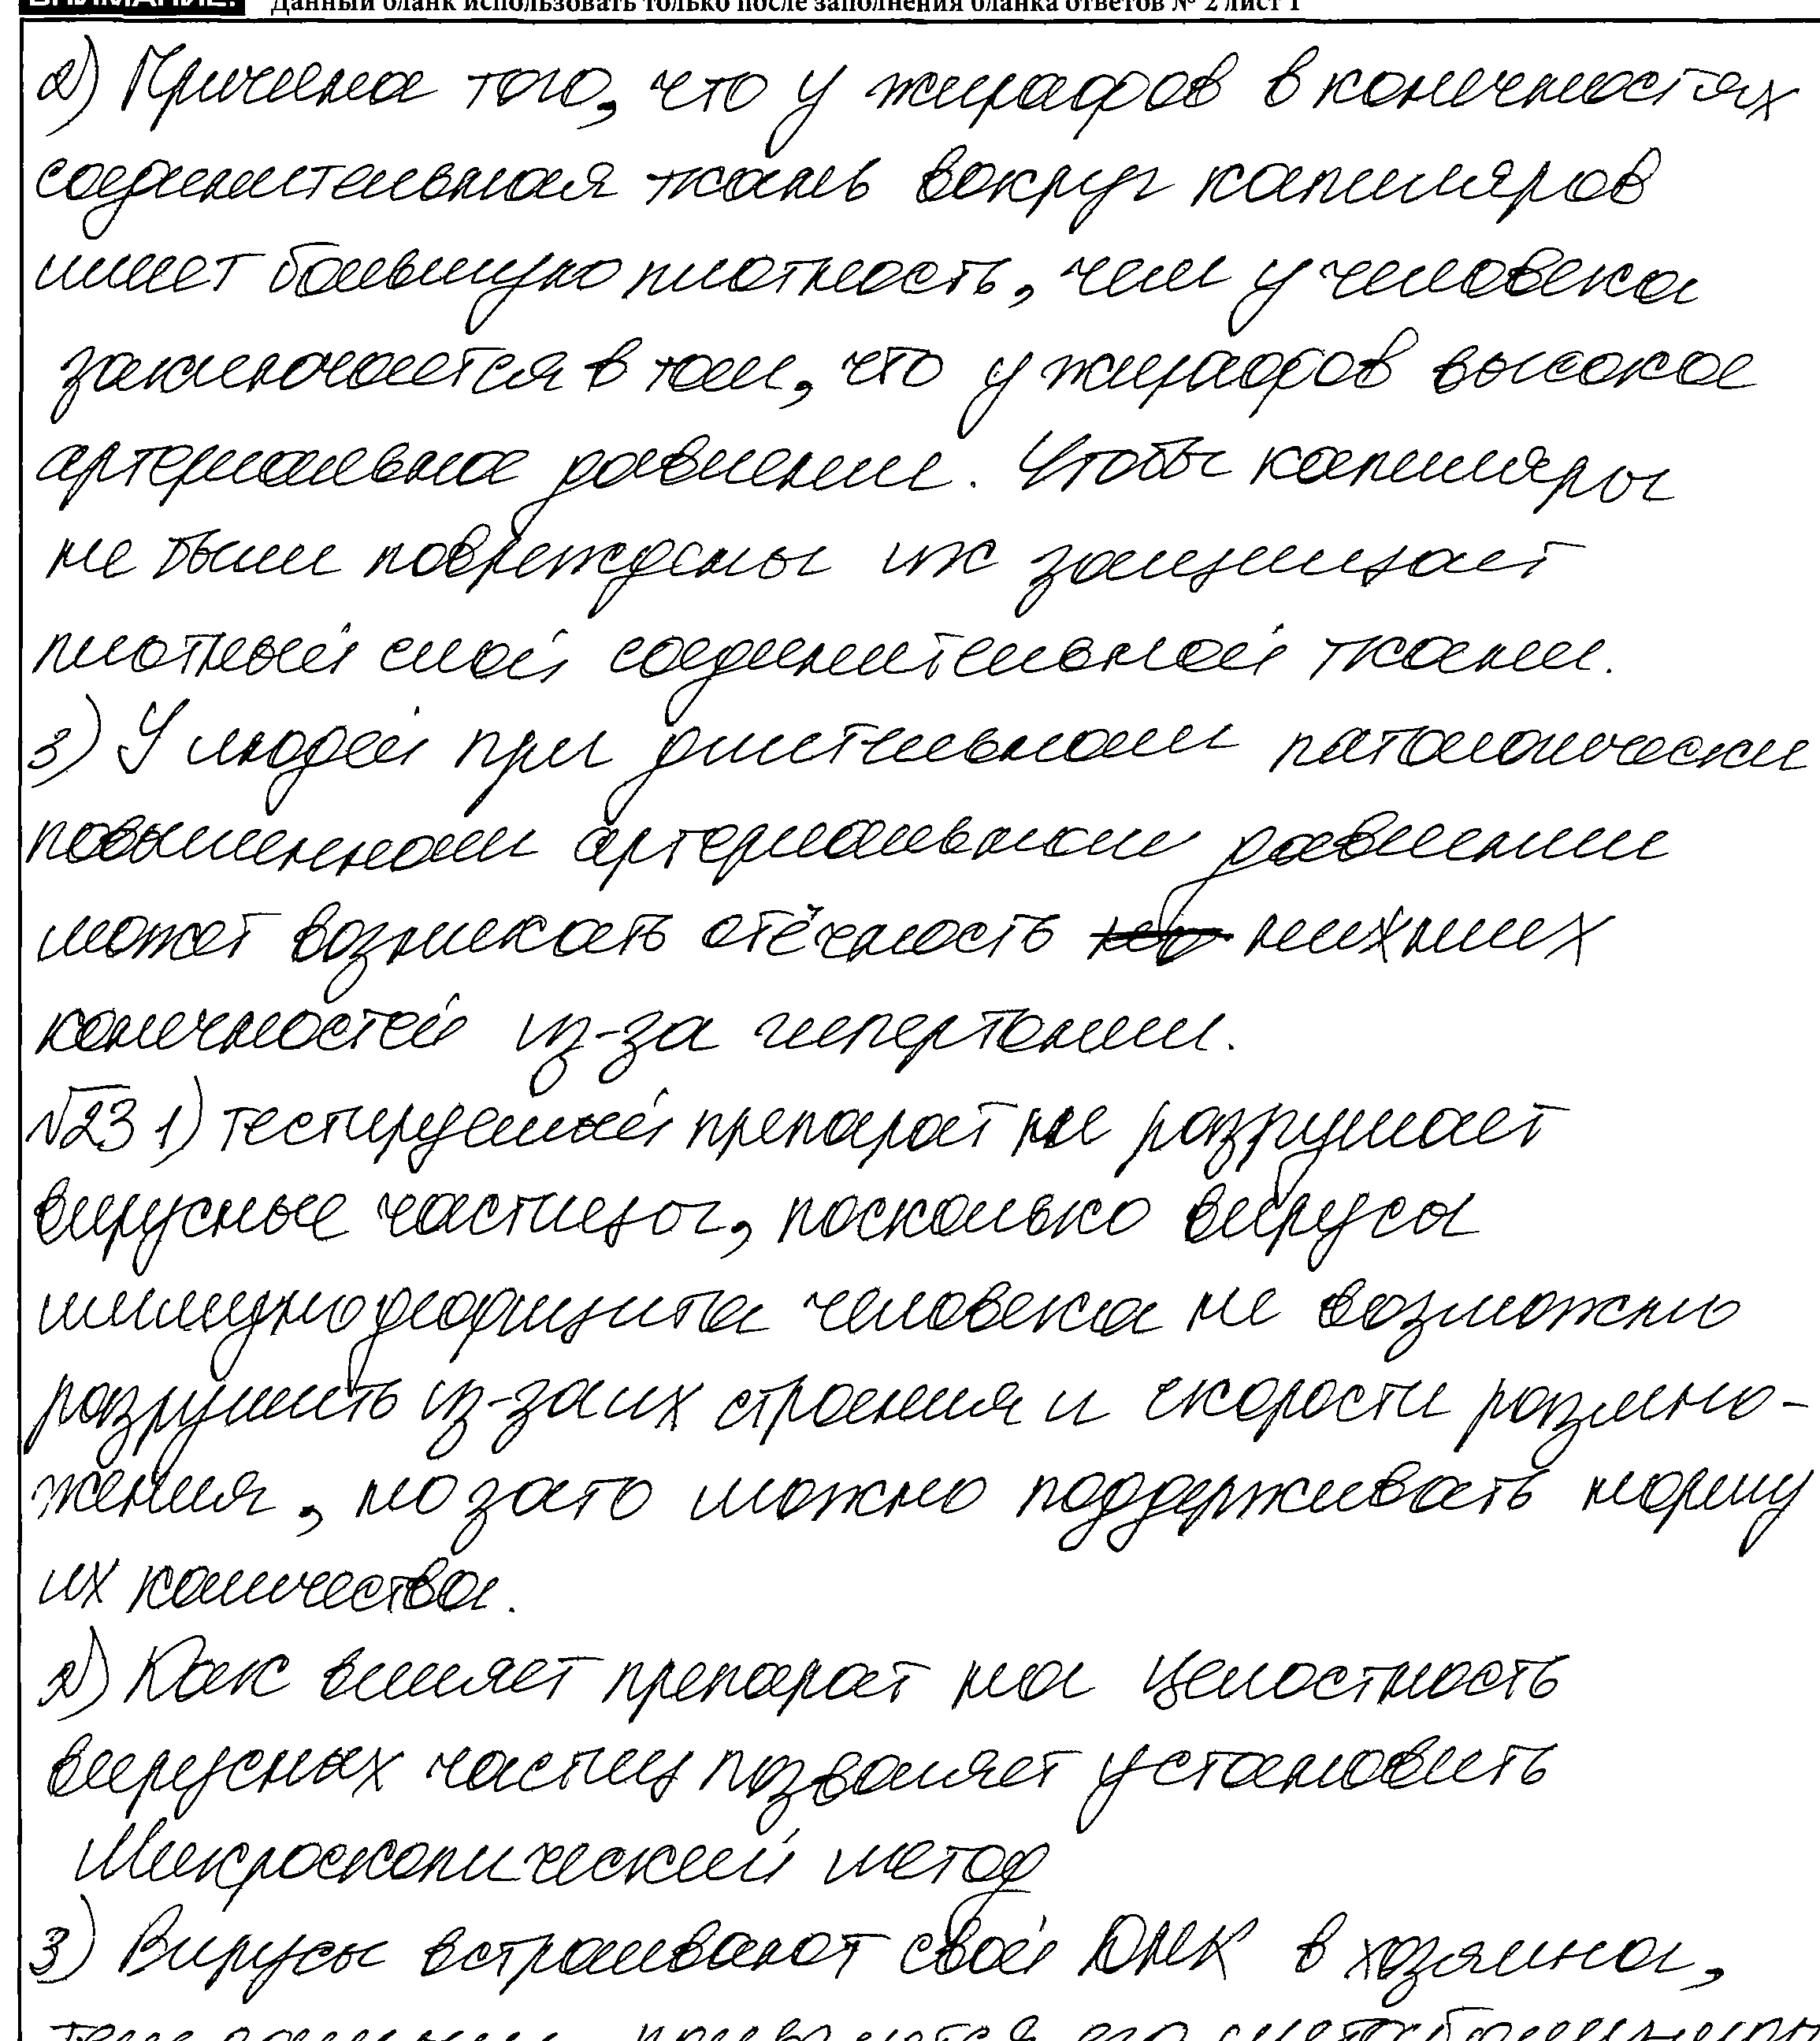 ВНИМАНИЕ! Данный бланк использовать только после заполнения бланка ответов № 2 лист 1
2) Причина того, что у жирафов в конечностях
соединительная ткань вокруг капиляров
имеет большую плотность, чем у человека
заключается в том, что у жирафов высокое
артериальна давлении. Чтобы капиляры
не были повреждены их защищает
плотный слой соединительной ткани.
3) У людей при длительном патологически
повышенном артериальном давлении
может возникать отёчность нижних
конечностей из-за гипертонии.
№23 1) Тестируемый препарат не разрушает
вирусные частицы, поскольку вирусы
иммунодефицита человека не возможно
разрушить из-за их строения и скорости размно-
жения, но зато можно поддерживать норму
их количества.
2) Как влияет препарат на целостность
вирусных частиц позволяет установить
Микроскопический метод
3) Вирусы встраивают свой ДНК в хозяина,